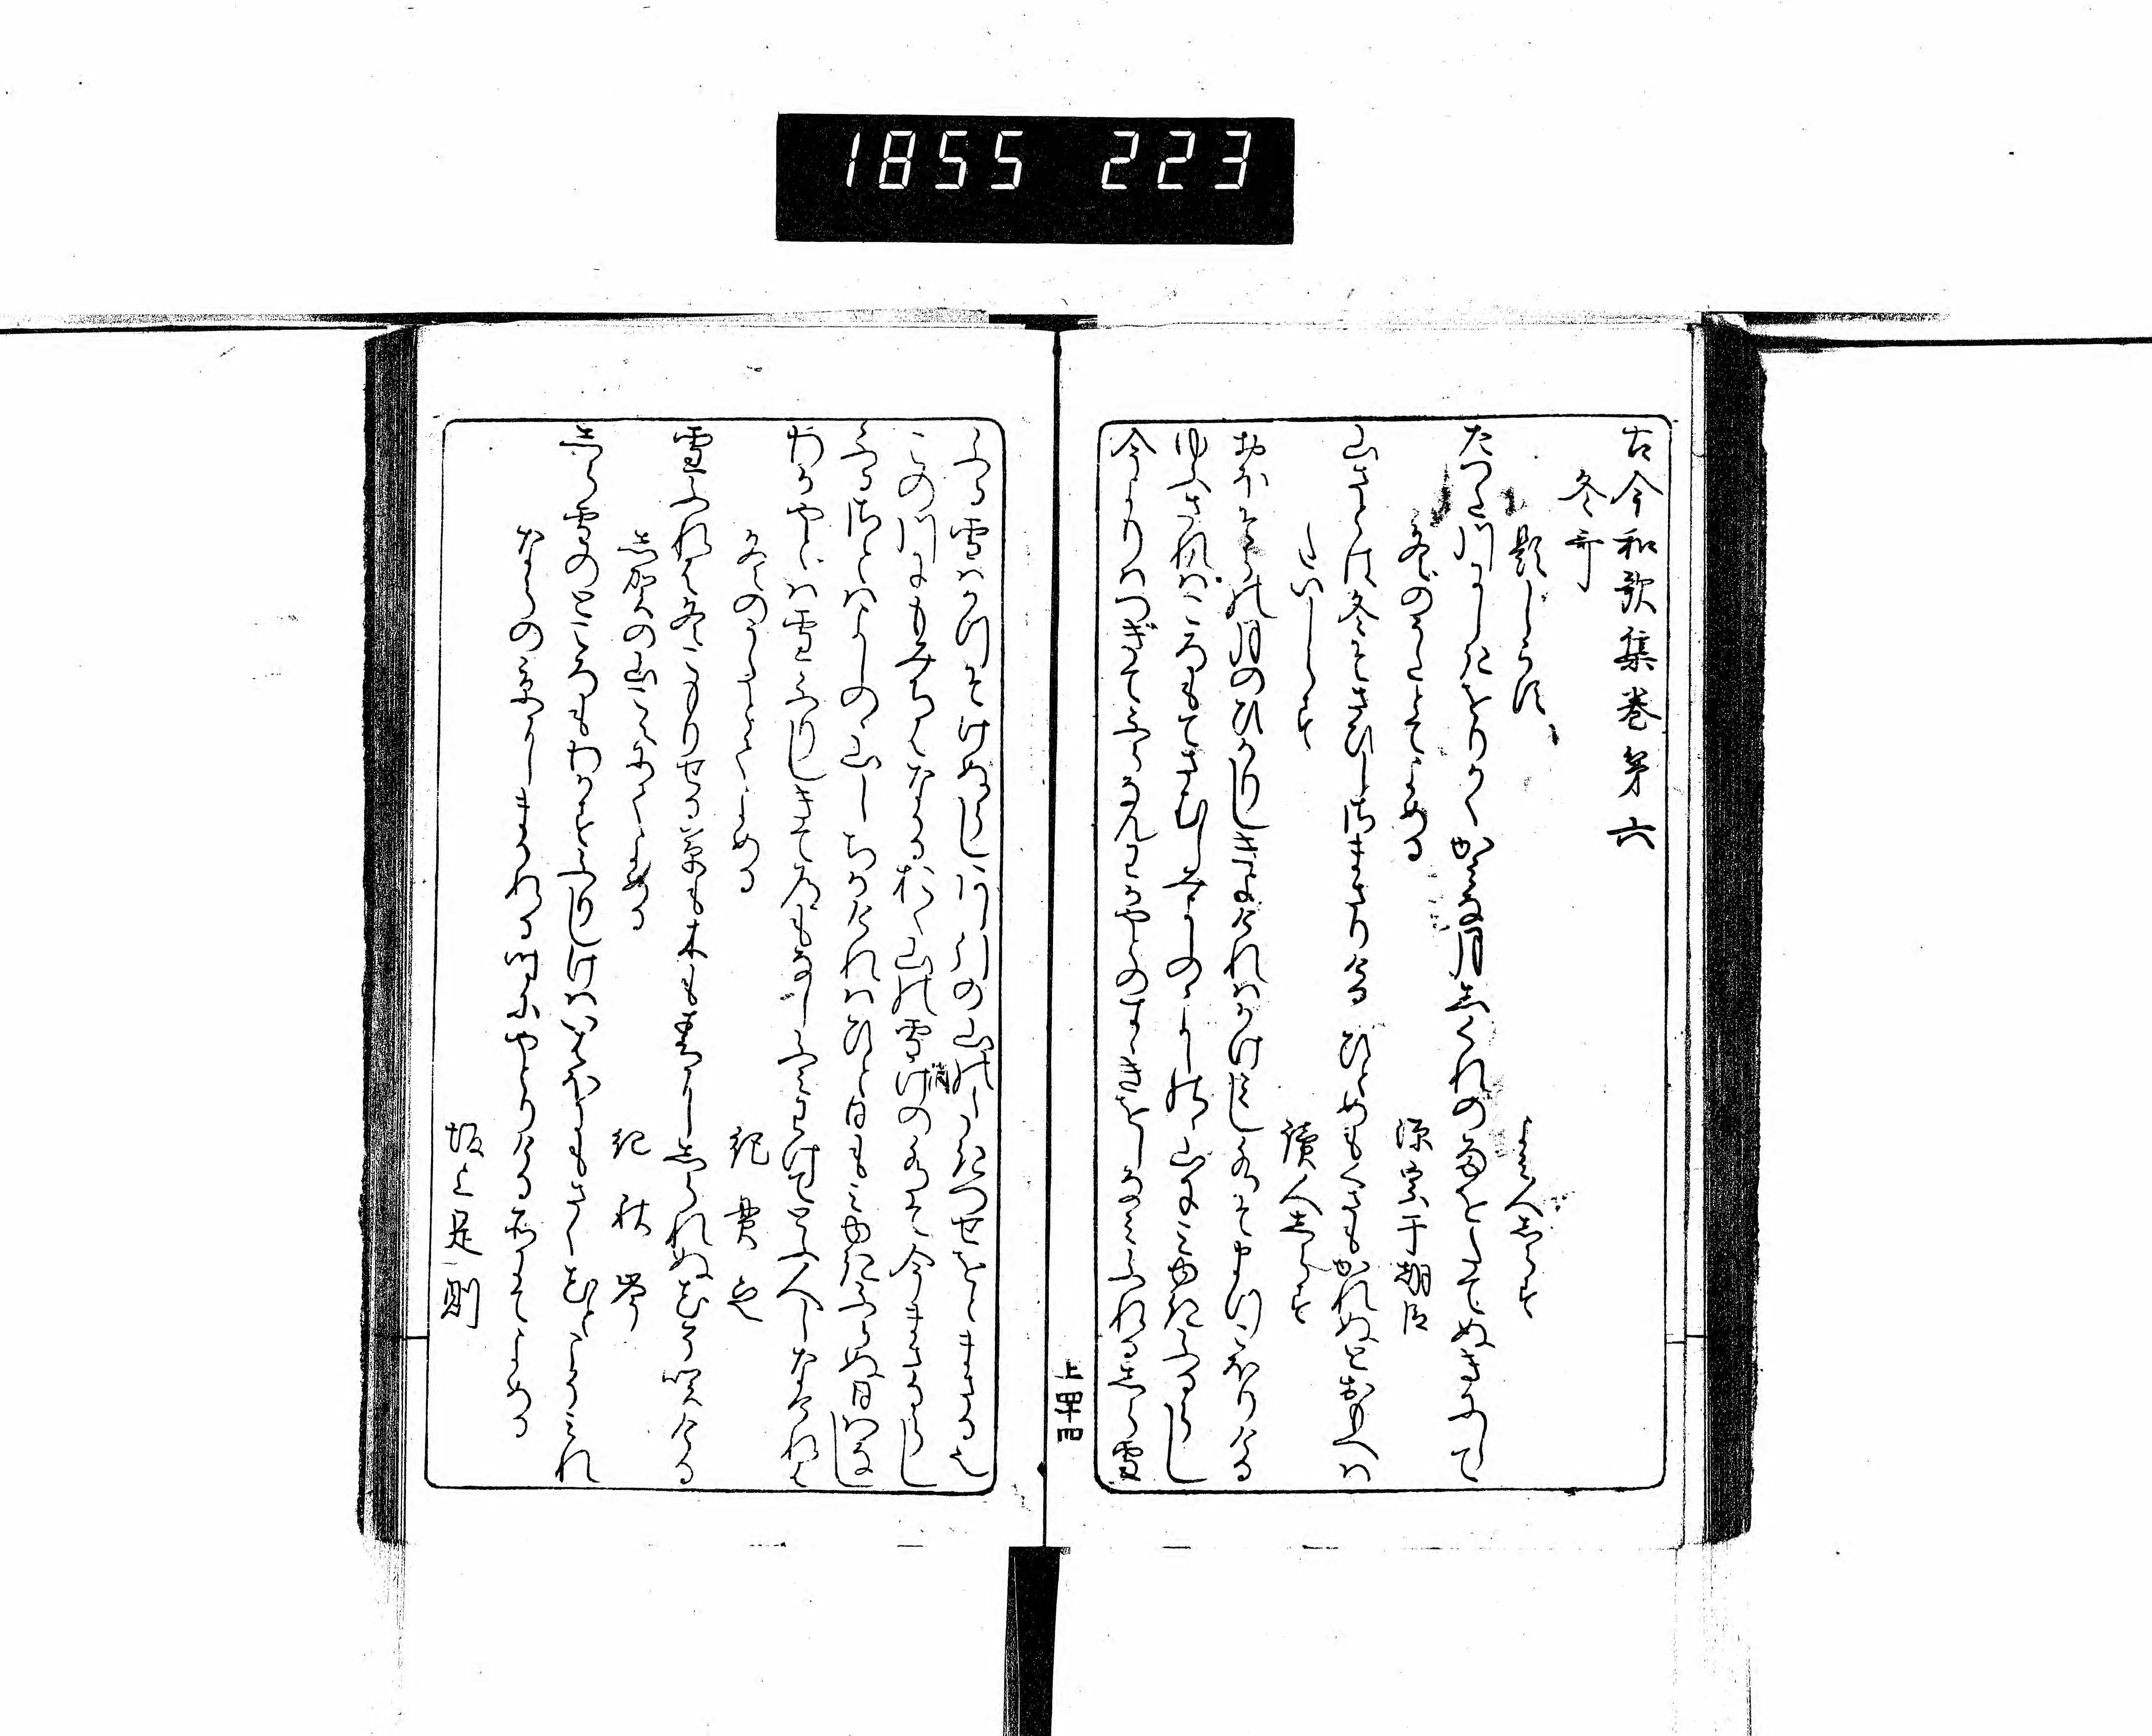 1855 223
古今和歌集巻第六
冬哥
題しらす
よみ人しらす
たつた川にしきをりかくかみな月しくれの雨をたてぬきにして
冬のうたとてよめる
源宗于朝臣
山さとは冬そさひしさまさりける ひとめもくさもかれぬとおもへは
たいしらす
讀人しらす
おほそらの月のひかりしきよけれはかけ見し水そまつこほりける
ゆふされはころもてさむしみよしのゝよしのゝ山にみゆきふるらし
今よりはつぎてふらなんわかやとのすゝきをしなみふれるしら雪
上四十四
ふる雪はかつそけぬらしあし引の山のたきつせをとまさる也
この川にもみちはなかるおく山の雪けの水そ今まさるらし
消
ふるさとはよしのゝ山しちかけれはひと日もみゆきふらぬ日はなし
わかやとは雪ふりしきて道もなしふみわけてとふ人しなけれは
冬のうたとてよめる
紀貫之
雪ふれは冬こもりせる草も木も春にしられぬ花そ咲ける
志賀の山こえにてよめる
紀秋岑
しら雪のところもわかすふりしけはいはほにもさく花とこそみれ
ならの京にまかれる時にやとりける所にてよめる
坂上是則